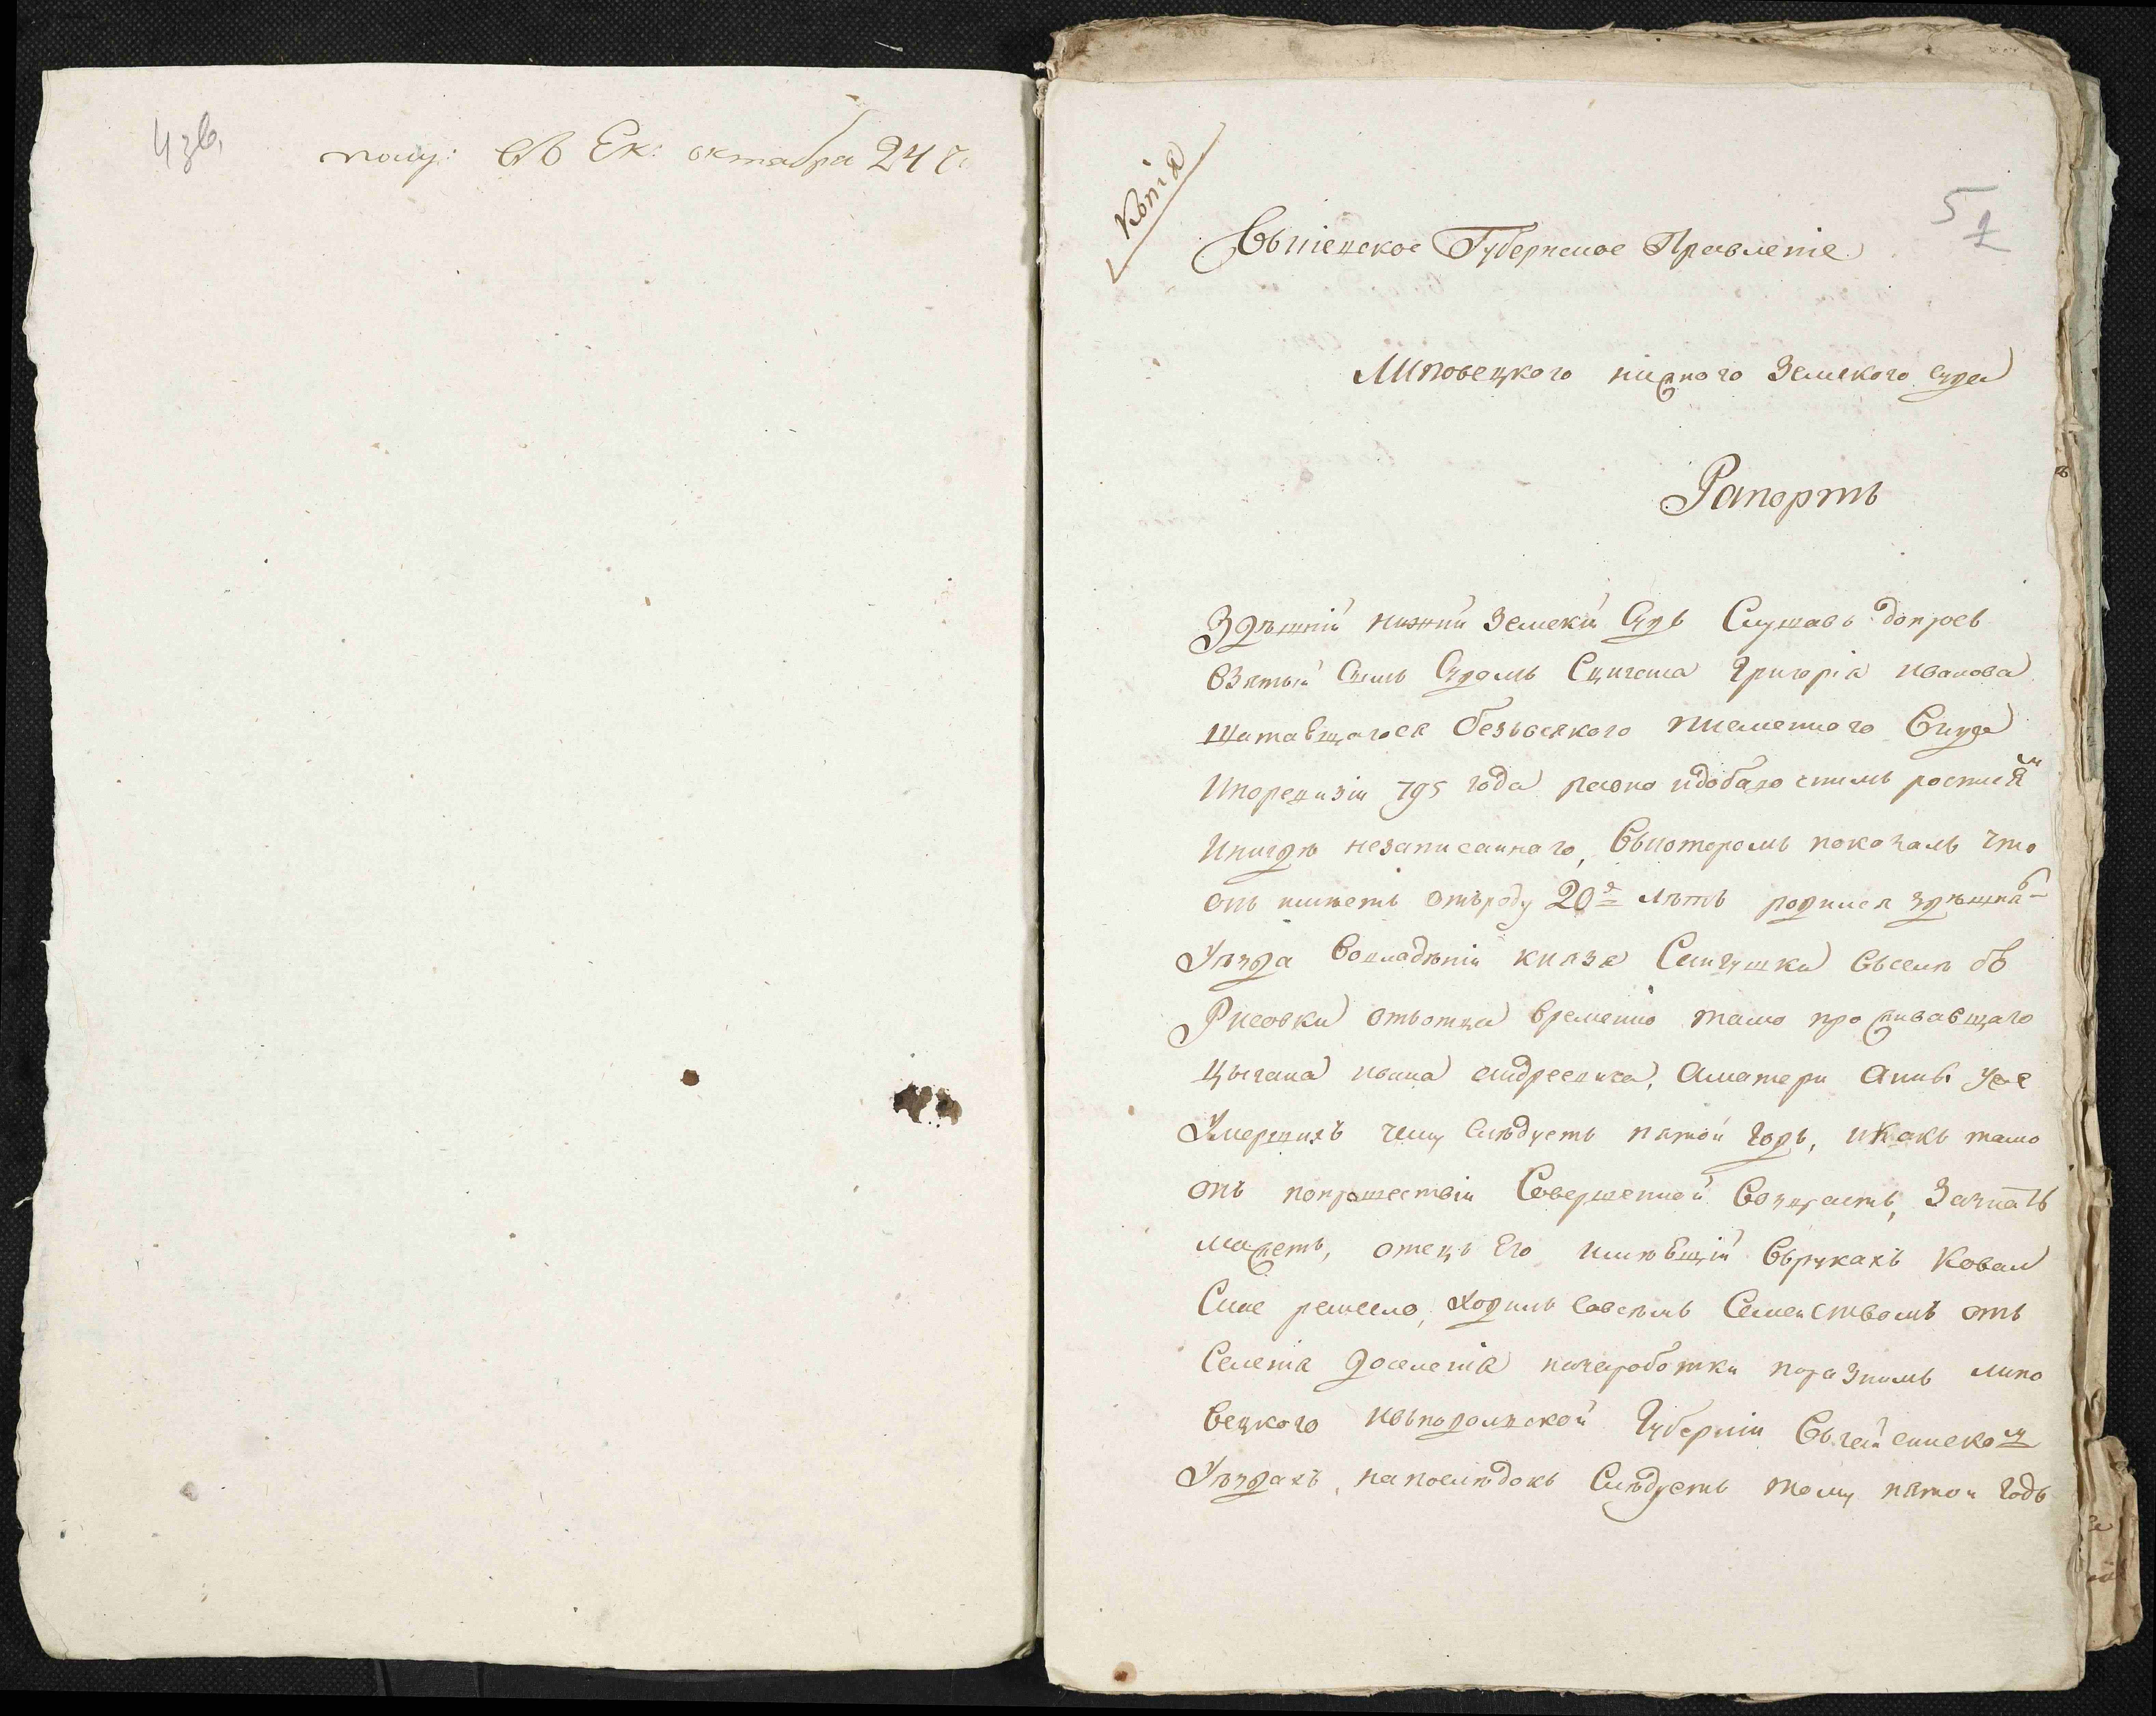 4 зв.
полу: въ Ек: октабра 24 г.
Копія
5
2
Вкіевское Губернское Правленіе
Липовецкого нижного Земского суда
Рапортъ
Здѣшній нижній Земскій Судъ Слушавъ допросъ
взятый Симъ Судомъ Сцигана Григорія Иванова
шатавшагося безъвсякого писменного Вида
Ипоревизіи 795 года равно идобавочнымъ росписямъ
Инигдѣ незаписанного, Вкоторомъ показалъ что
онъ имѣетъ отъроду 20ъ лѣтъ родился здѣшнаго
Уѣзда Вовладѣніи князя Сангушки Въселѣ бо
Рисовки отъотца временно тамо проживавшаго
Цыгана ивана андреевича, Аматери Анны уже
Умершихъ чему слѣдуетъ пятой годъ, икакъ тамо
онъ попрошествіи Совершенной Возрастъ, Зазнатъ
можетъ, отецъ его имѣвшій Върукахъ Ковал
Ское ремесло, ходилъ совсѣмъ Семействомъ отъ
Селенія доселенія назаработки поразнымъ липо
вецкого ивъподольской Губерніи Въгайсинском
Уѣздахъ, напослѣдокъ Слѣдуетъ тому пятой годъ